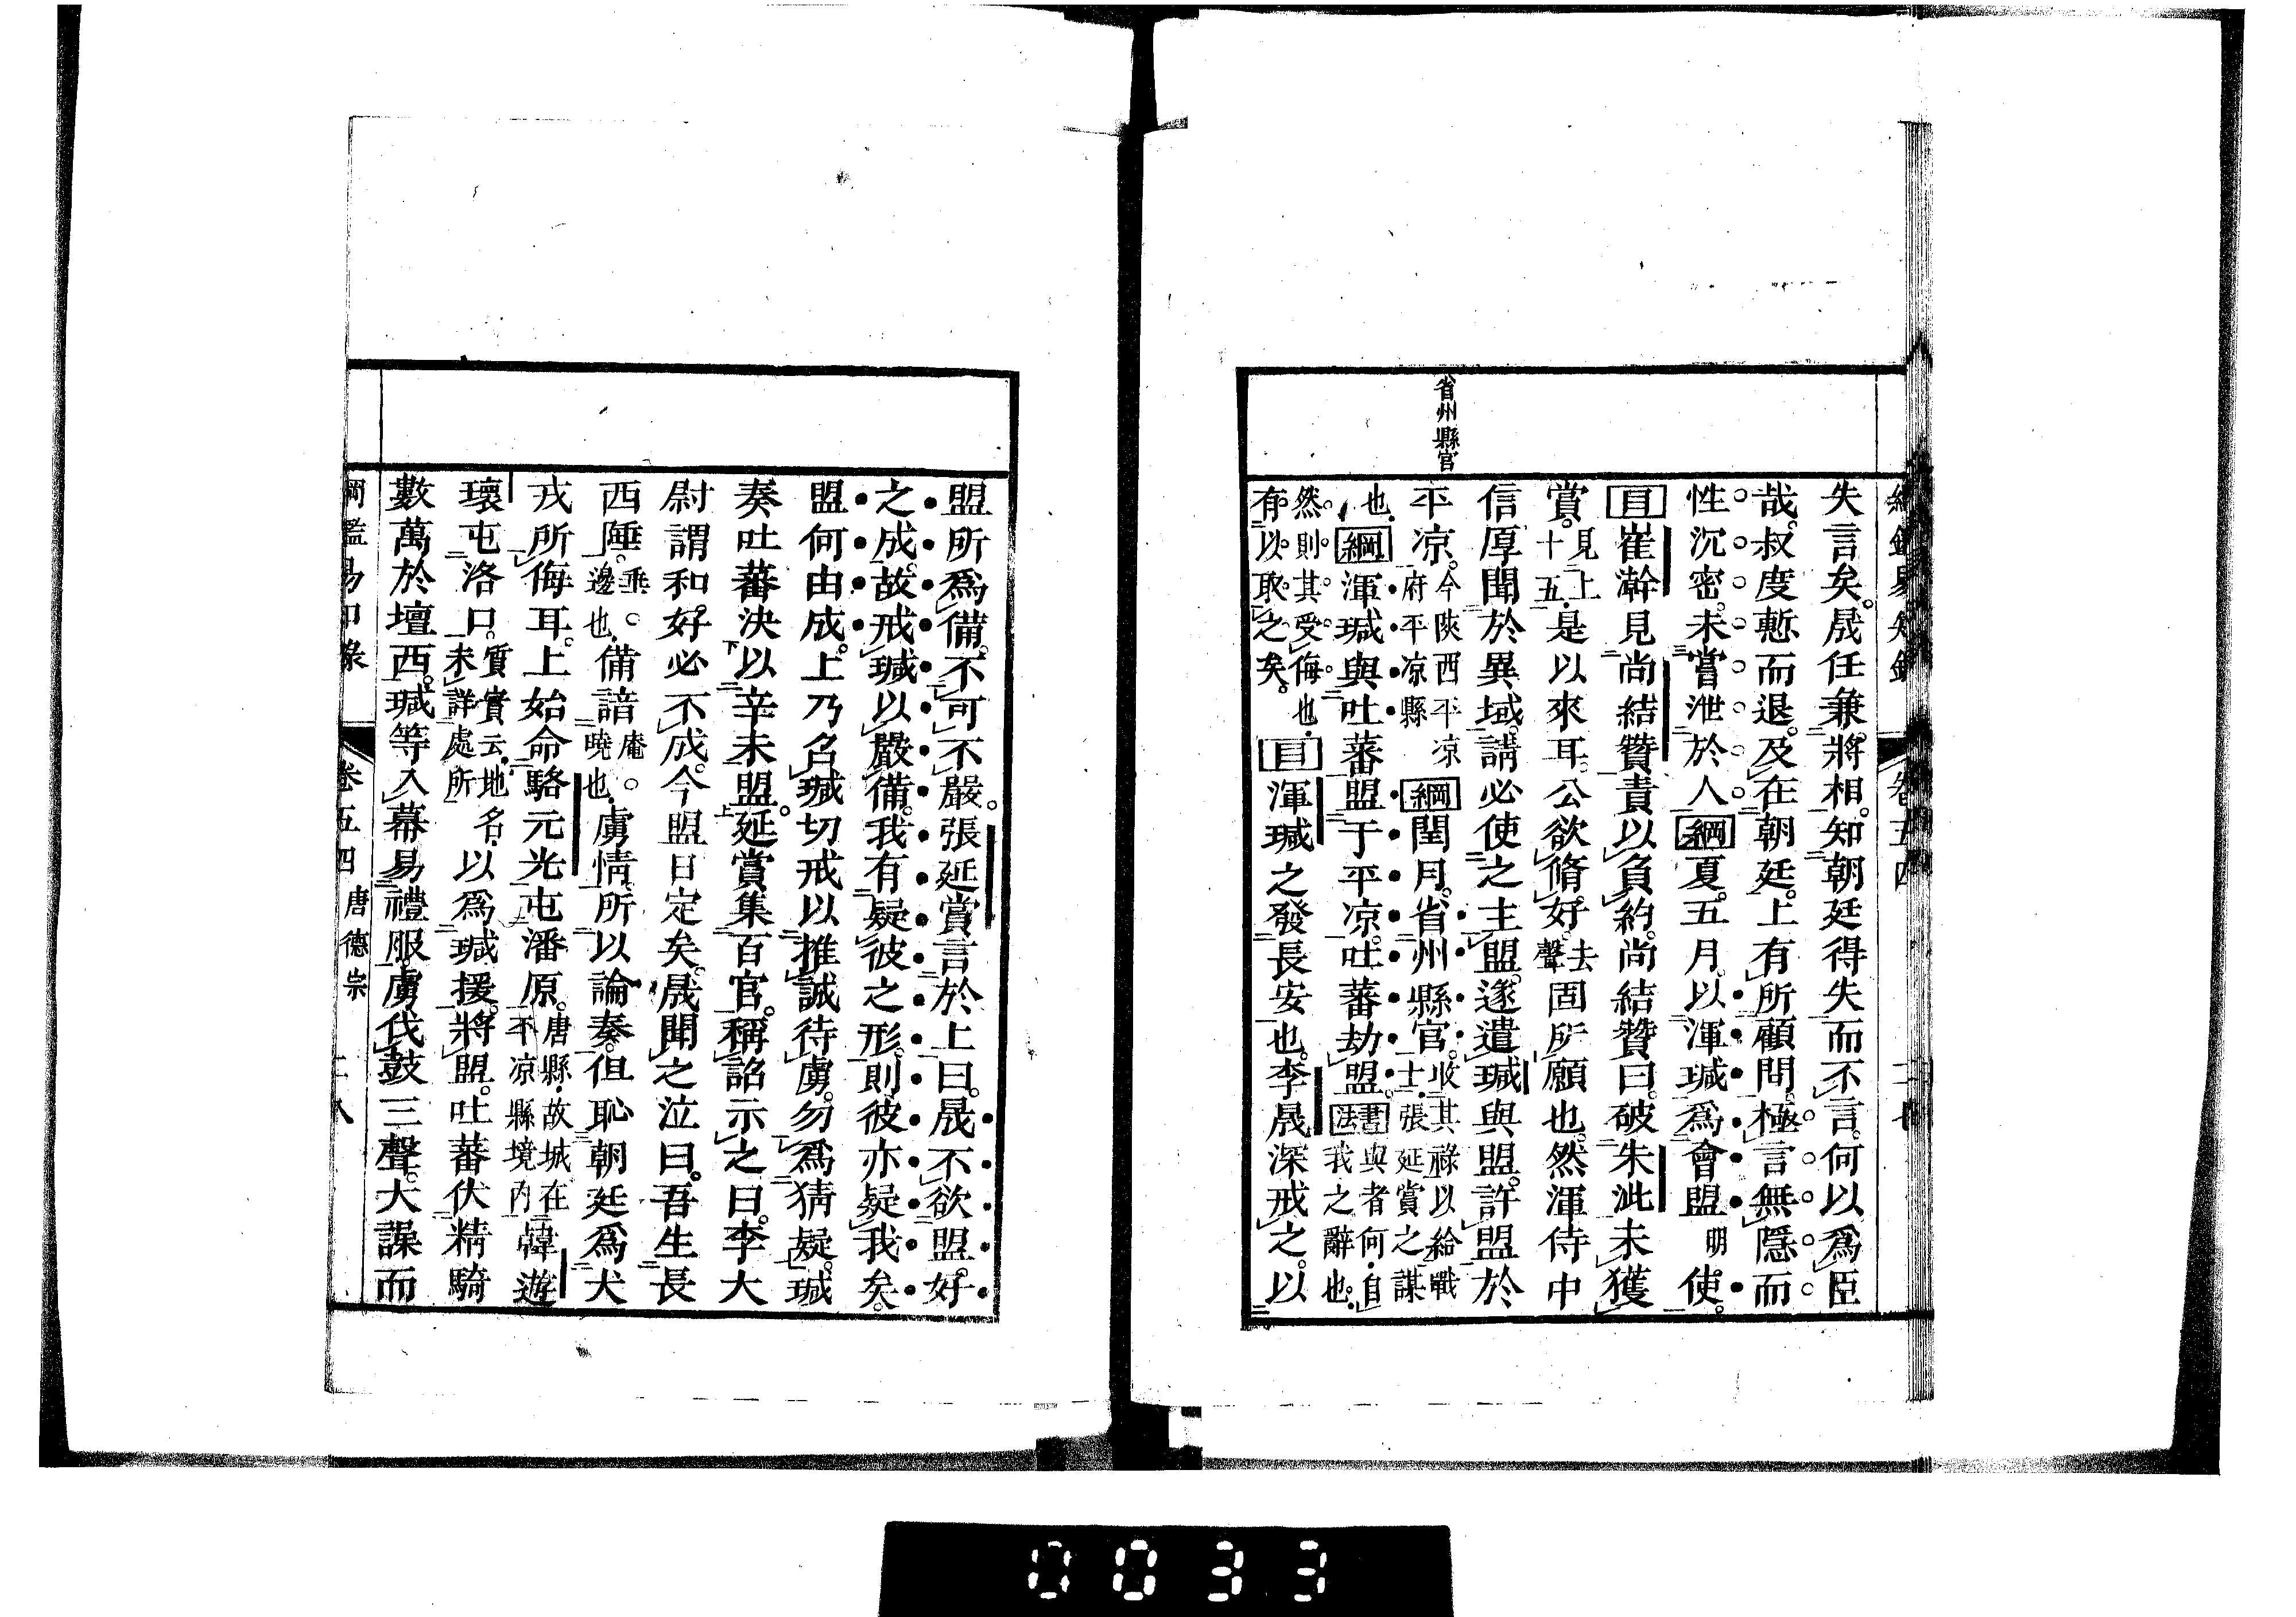 失言矣。晟任兼將相。知朝廷得失而不言。何以爲臣
哉。叔度慙而退。及在朝廷。上有所顧問。極言無隱。而
性沉密。未嘗泄於人。綱夏。五月。以渾瑊爲會盟明使。
目崔澣見尚結贊責以負約。尚結贊曰。破朱泚未獲
賞。見上十五。是以來耳。公欲脩好。去聲固所願也。然渾侍中
信厚聞於異域。請必使之主盟。遂遣瑊與盟。許盟於
平凉。今陜西平凉府平凉縣綱閏月。省州縣官。收其祿以給戰士。張延賞之謀
也。綱渾瑊與吐蕃盟于平凉。吐蕃劫盟。書法與者何。自我之辭也。
然。則其受侮也。有以取之矣。目渾瑊之發長安也。李晟深戒之。以
省州縣官
盟所爲備。不可不嚴。張延賞言於上曰。晟不欲盟。好
之成。故戒瑊以嚴備。我有疑彼之形。則彼亦疑我矣。
盟何由成。上乃召瑊切戒以推誠待虜。勿爲猜疑。瑊
奏吐蕃決以辛未盟。延賞集百官。稱詔示之曰。李大
尉謂和好必不成。今盟日定矣。晟聞之泣曰。吾生長
西陲。垂。邊也。備諳庵。曉也。虜情。所以論奏。但恥朝廷爲犬
戎所侮耳。上始命駱元光屯潘原。唐縣。故城在平凉縣境內韓遊
瓌屯洛口。質實云。地名。未詳處所以爲瑊援。將盟。吐蕃伏精騎
數萬於壇西。瑊等入幕易禮服。虜伐鼓三聲。大譟而
綱鑑易知錄 卷五四 唐德宗 二八
0033